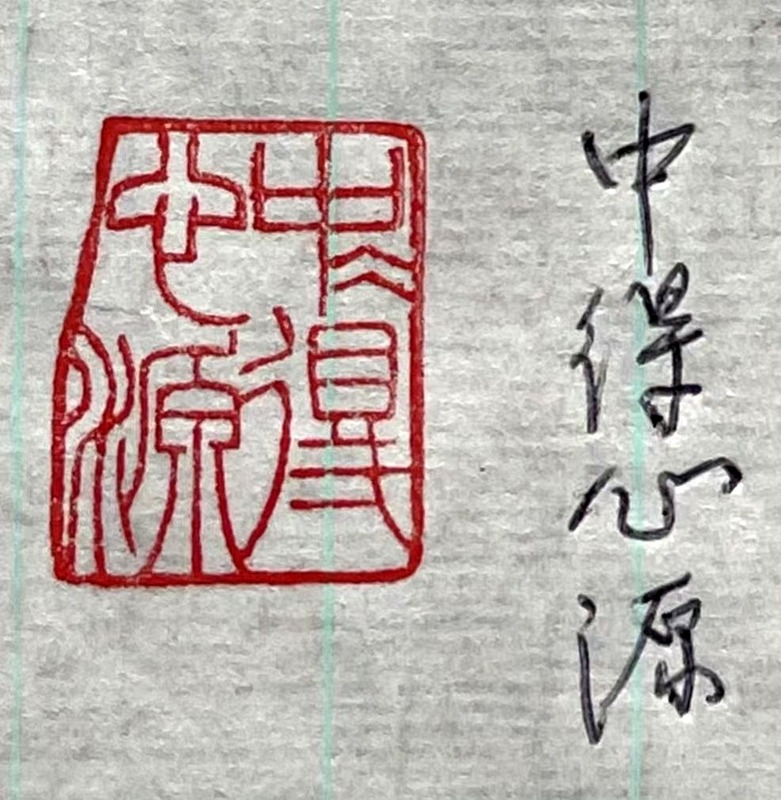 中得心源
中得心源